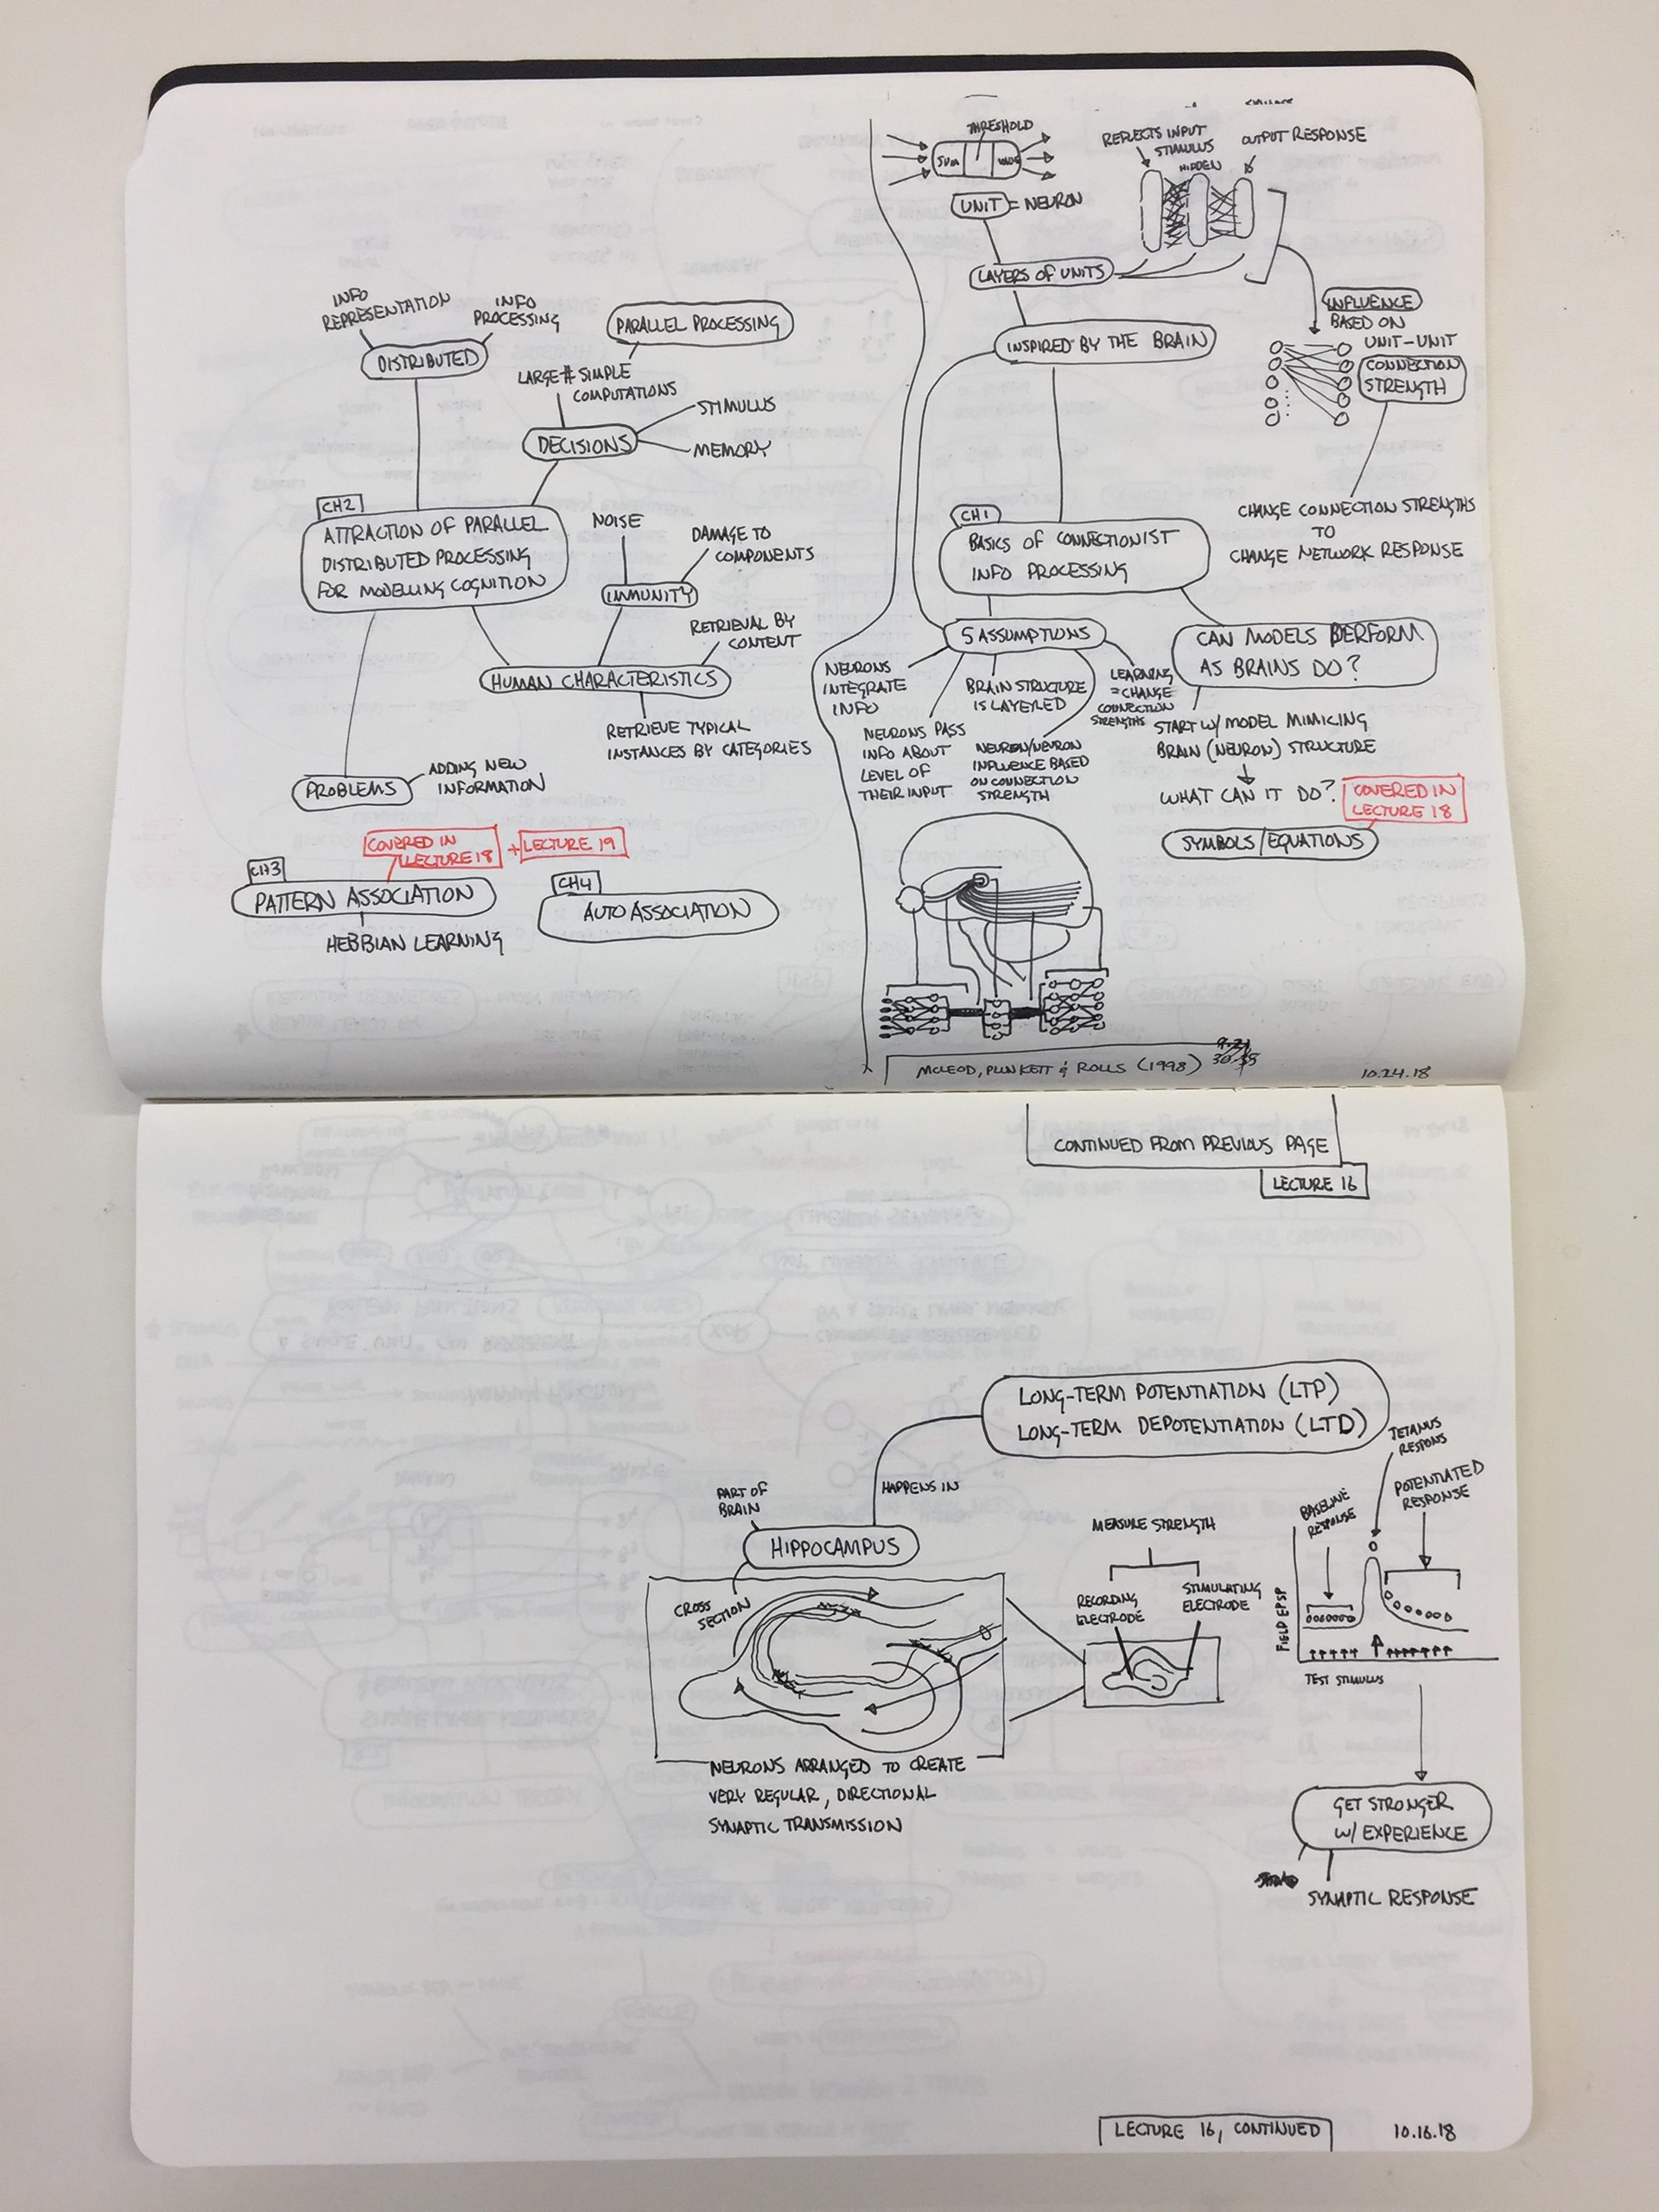 THRESHOLD
SUM
UNIT = NEURON
REFLECTS INPUT
STIMULUS
HIDDEN
OUTPUT RESPONSE
LAYERS OF UNITS
INSPIRED BY THE BRAIN
INFLUENCE
BASED ON
UNIT-UNIT
CONNECTION
STRENGTH
CHANGE CONNECTION STRENGTHS
TO
CHANGE NETWORK RESPONSE
CH1
BASICS OF CONNECTIONIST
INFO PROCESSING
5 ASSUMPTIONS
NEURONS
INTEGRATE
INFO
NEURONS PASS
INFO ABOUT
LEVEL OF
THEIR INPUT
BRAIN STRUCTURE
IS LAYERED
NEURON/NEURON
INFLUENCE BASED
ON CONNECTION
STRENGTH
LEARNING
= CHANGE
CONNECTION
STRENGTHS
CAN MODELS PERFORM
AS BRAINS DO?
START W/ MODEL MIMICING
BRAIN (NEURON) STRUCTURE
WHAT CAN IT DO?
COVERED IN
LECTURE 18
SYMBOLS/EQUATIONS
MCLEOD, PLUNKETT & ROLLS (1998)
10.24.18
INFO
REPRESENTATION
INFO
PROCESSING
DISTRIBUTED
PARALLEL PROCESSING
LARGE # SIMPLE
COMPUTATIONS
DECISIONS
STIMULUS
MEMORY
CH2
ATTRACTION OF PARALLEL
DISTRIBUTED PROCESSING
FOR MODELLING COGNITION
NOISE
DAMAGE TO
COMPONENTS
IMMUNITY
RETRIEVAL BY
CONTENT
HUMAN CHARACTERISTICS
RETRIEVE TYPICAL
INSTANCES BY CATEGORIES
PROBLEMS
ADDING NEW
INFORMATION
COVERED IN
LECTURE 18
+ LECTURE 19
CH3
PATTERN ASSOCIATION
HEBBIAN LEARNING
CH4
AUTO ASSOCIATION
CONTINUED FROM PREVIOUS PAGE
LECTURE 16
LONG-TERM POTENTIATION (LTP)
LONG-TERM DEPOTENTIATION (LTD)
HAPPENS IN
PART OF
BRAIN
HIPPOCAMPUS
CROSS
SECTION
NEURONS ARRANGED TO CREATE
VERY REGULAR, DIRECTIONAL
SYNAPTIC TRANSMISSION
MEASURE STRENGTH
RECORDING
ELECTRODE
STIMULATING
ELECTRODE
TETANUS
RESPONS
BASELINE
RESPONSE
POTENTIATED
RESPONSE
FIELD EPSP
TEST STIMULUS
GET STRONGER
W/ EXPERIENCE
SYNAPTIC RESPONSE
LECTURE 16, CONTINUED
10.16.18